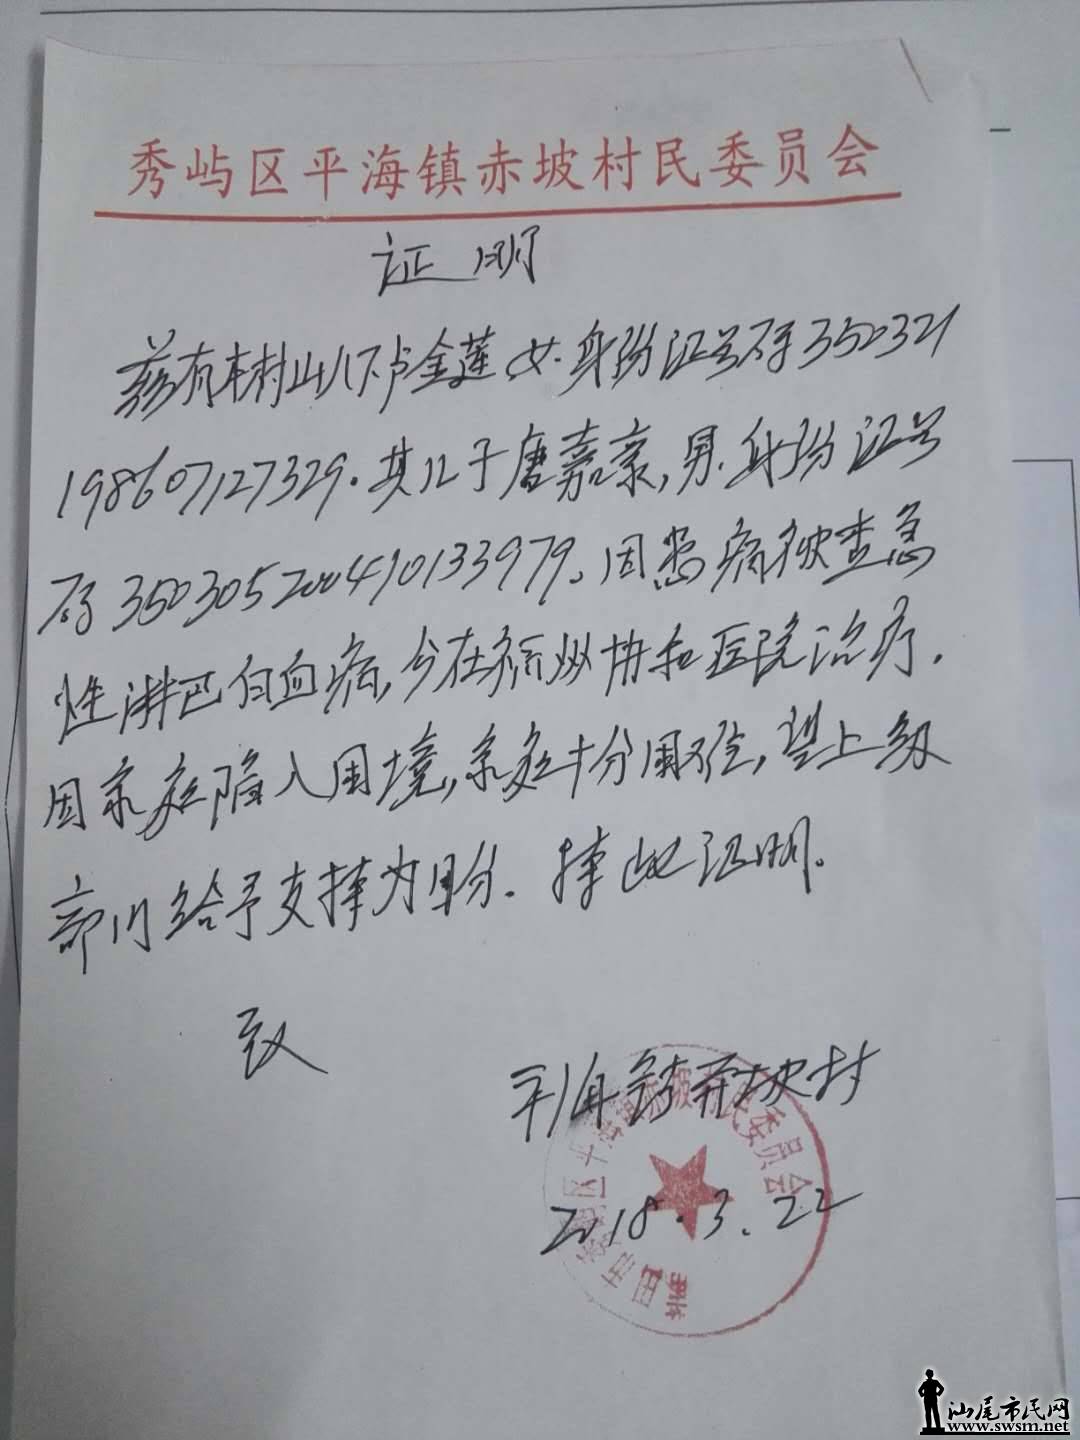 秀屿区平海镇赤坡村民委员会
证明
兹有本村山八下卢金莲 女.身份证号码350321
198607127329.其儿子唐嘉豪,男.身份证号
码350305200410133979。因患病被查急
性淋巴白血病,今在福州协和医院治疗.
因家庭陷入困境,家庭十分困难,望上级
部门给予支持为盼.持此证明.
致
平海镇赤坡村
2018.3.22
莆田市秀屿区平海镇赤坡村民委员会
汕尾市民网
www.swsm.net